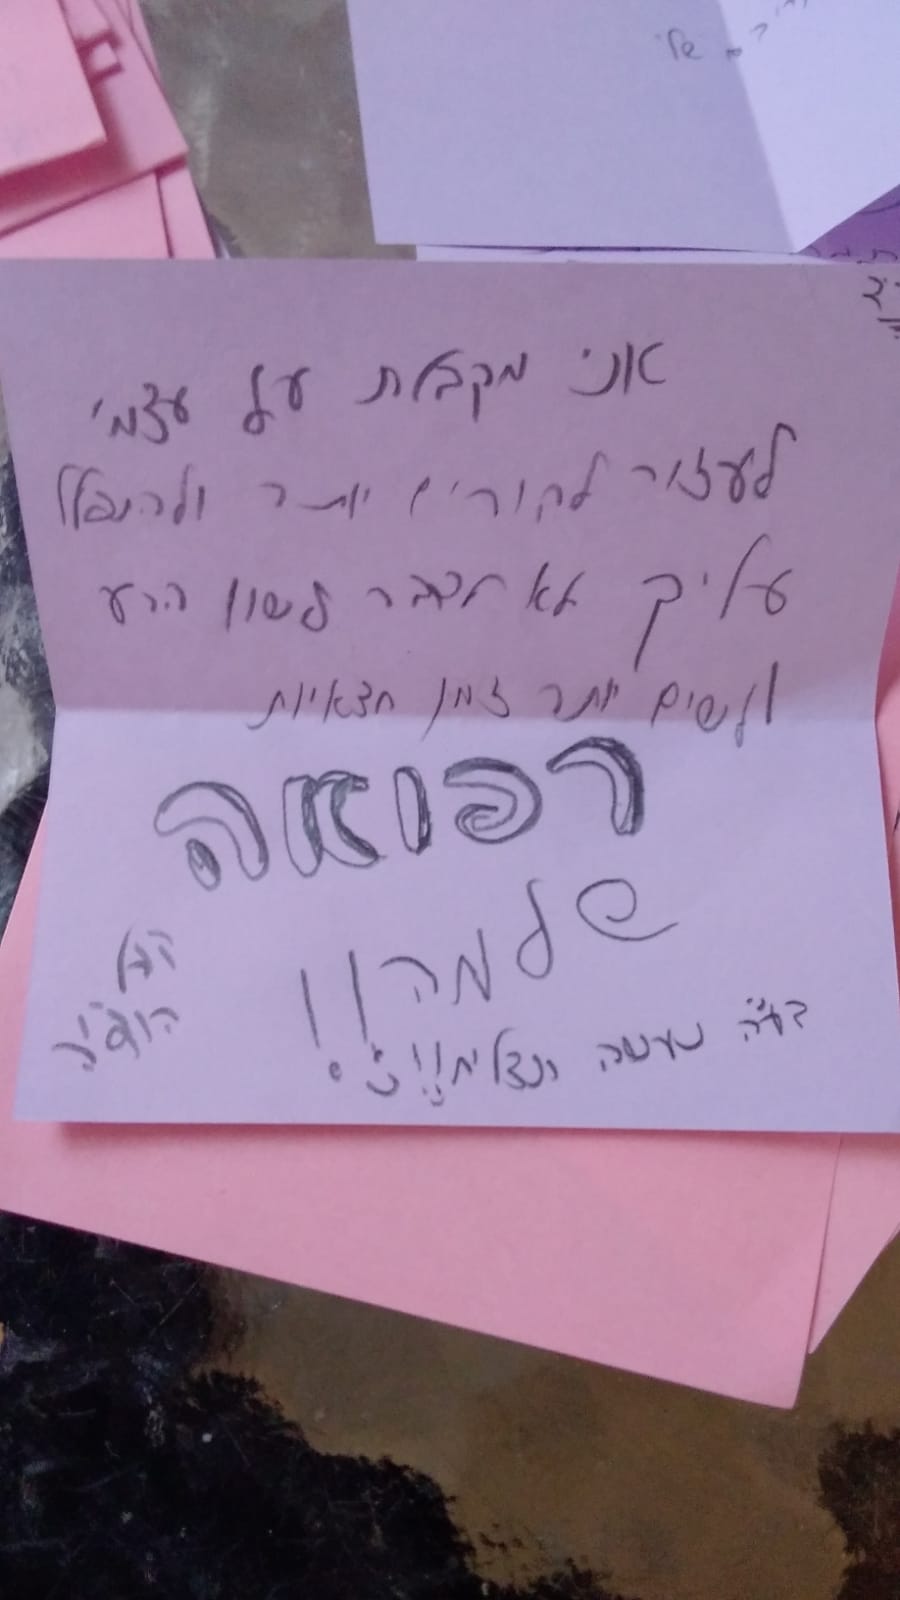 אני מקבלת על עצמי
לעזור להורים יותר ולהתפלל
עליך לא לדבר לשון הרע
ולשים יותר זמן חצאיות
רפואה
שלמה!!
בע"ה נעשה ונצליח!!